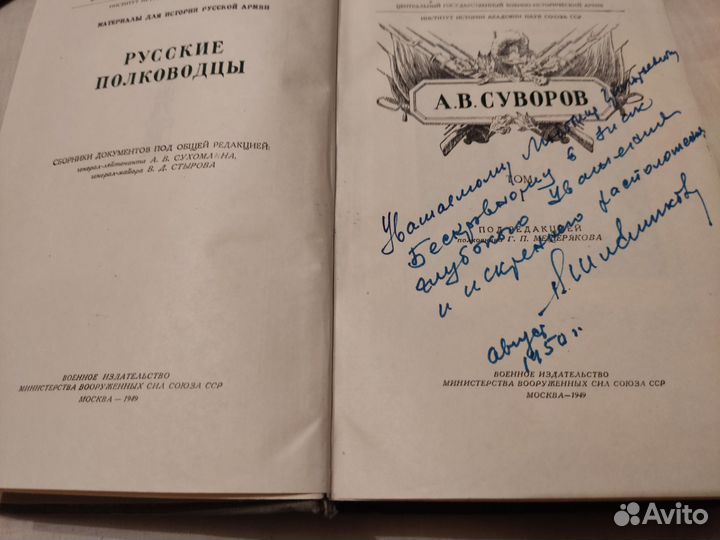 МАТЕРИАЛЫ ДЛЯ ИСТОРИИ РУССКОЙ АРМИИ
РУССКИЕ
ПОЛКОВОДЦЫ
СБОРНИКИ ДОКУМЕНТОВ ПОД ОБЩЕЙ РЕДАКЦИЕЙ:
генерал-лейтенанта А. В. СУХОМЛИНА,
генерал-майора В. Д. СТЫРОВА
ВОЕННОЕ ИЗДАТЕЛЬСТВО
МИНИСТЕРСТВА ВООРУЖЕННЫХ СИЛ СОЮЗА ССР
МОСКВА—1949
ЦЕНТРАЛЬНЫЙ ГОСУДАРСТВЕННЫЙ ВОЕННО-ИСТОРИЧЕСКИЙ АРХИВ
ИНСТИТУТ ИСТОРИИ АКАДЕМИИ НАУК СОЮЗА ССР
А.В.СУВОРОВ
ТОМ
I
ПОД РЕДАКЦИЕЙ
полковника Г. П. МЕЩЕРЯКОВА
Уважаемому Любомиру Григорьевичу
Бескровному в знак
глубокого уважения
и искреннего расположения
август
1950 г.
ВОЕННОЕ ИЗДАТЕЛЬСТВО
МИНИСТЕРСТВА ВООРУЖЕННЫХ СИЛ СОЮЗА ССР
МОСКВА—1949
Avito